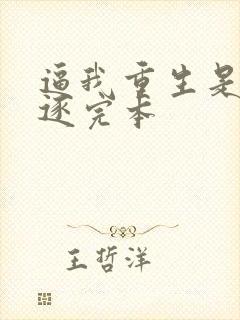 逼我重生是
逐完本
王哲洋